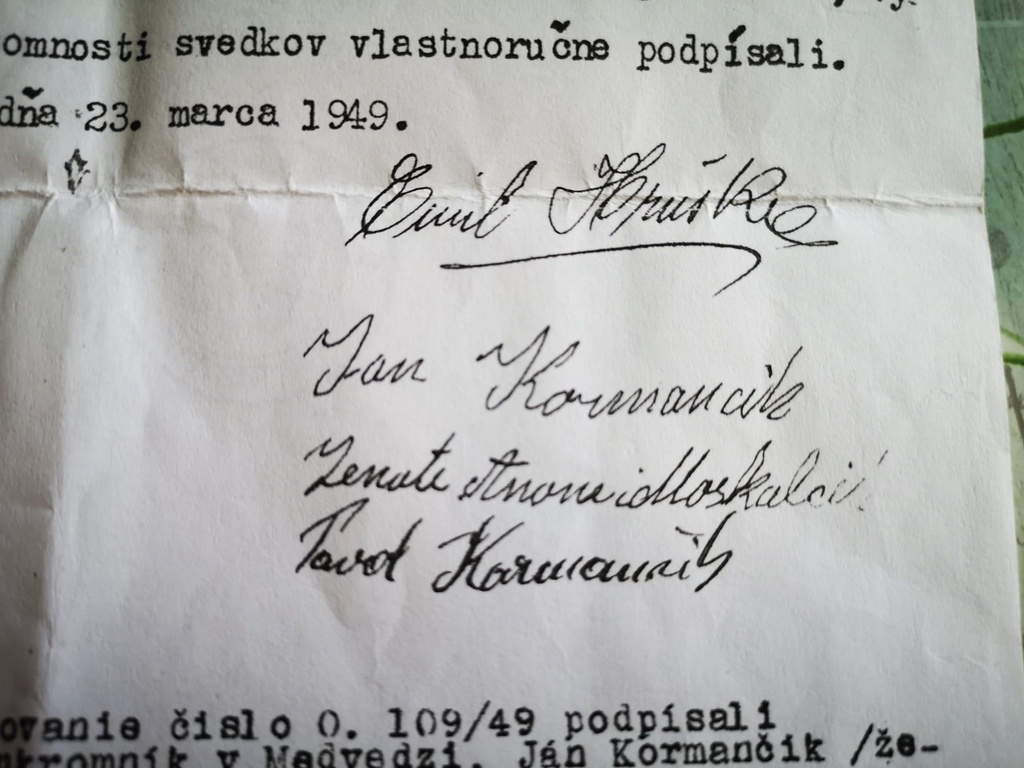 omnosti svedkov vlastnoručne podpísali.
dňa 23. marca 1949.
Emil Hruška
Jan Kormancik
Pavol Kormančik
ovanie čislo O. 109/49 podpísali
nkromník v Medvedzi, Ján Kormančík /že-